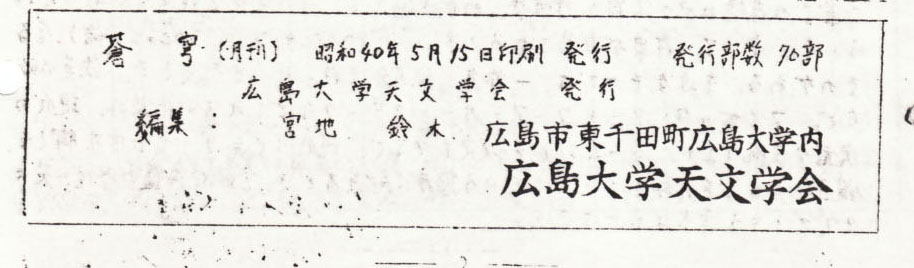 蒼穹 (月刊) 昭和40年5月15日印刷 発行 発行部数 70部
広島大学天文学会 発行
編集: 宮地 鈴木 広島市東千田町広島大学内
広島大学天文学会